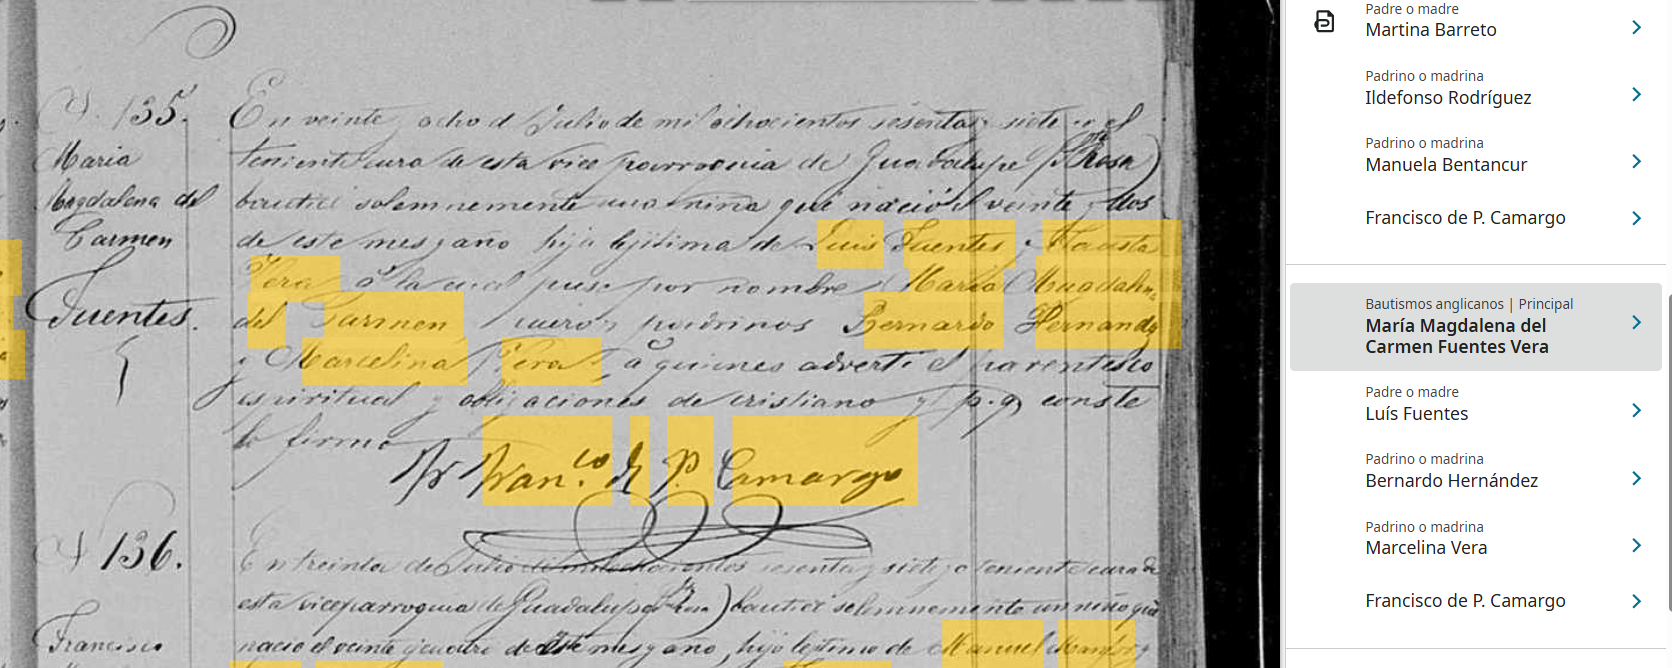 N. 135.
Maria
Magdalena del
Carmen
Fuentes.
En veinte y ocho d Julio de mil ochocientos sesenta y siete yo el
teniente cura de esta vice parroquia de Guadalupe (Sta Rosa)
bauticé solemnemente una niña que nació el veinte y dos
de este mes y año hija lejitima de Luis Fuentes y Fausta
Vera a la cual puse por nombre Maria Magdalena
del Carmen fueron padrinos Bernardo Hernandz
y Marcelina Vera a quienes adverti el parentesco
espiritual y obligaciones de cristiano y p.q conste
lo firmo
Fr Fran.co de P. Camargo
N 136.
Francisco
En treinta de Julio de mil ochocientos sesenta y siete yo teniente cura de
esta viceparroquia de Guadalupe bauticé solemnemente un niño que
nacio el veinte y cuatro de este mes y año, hijo lejtimo de Manuel
Padre o madre
Martina Barreto
Padrino o madrina
Ildefonso Rodríguez
Padrino o madrina
Manuela Bentancur
Francisco de P. Camargo
Bautismos anglicanos | Principal
María Magdalena del
Carmen Fuentes Vera
Padre o madre
Luís Fuentes
Padrino o madrina
Bernardo Hernández
Padrino o madrina
Marcelina Vera
Francisco de P. Camargo